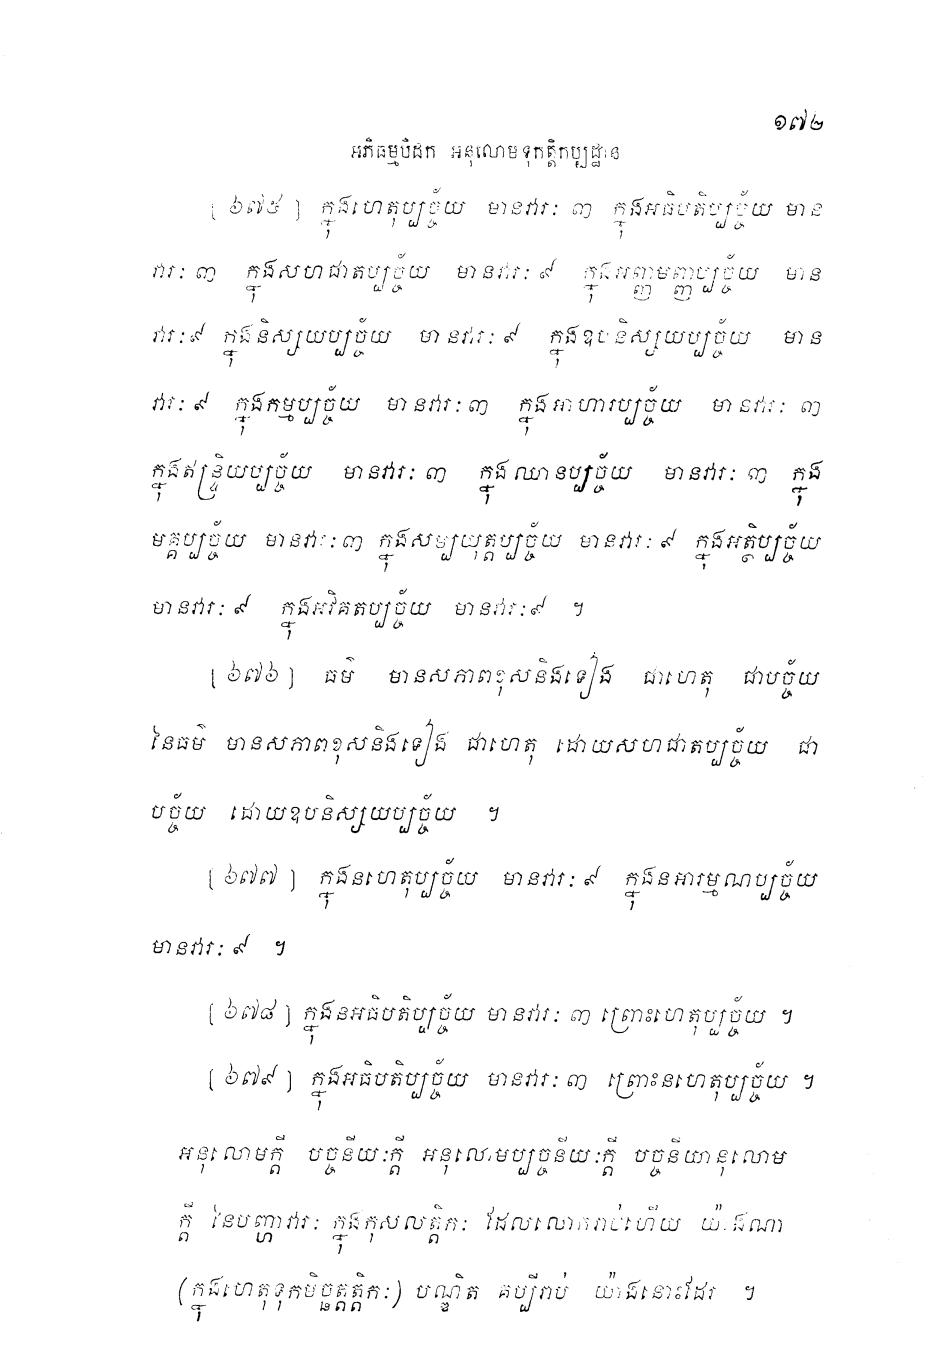 ១៧២
អភិធម្មបិដក អនុលោមទុកត្តិកប្បដ្ឋាន
[ ៦៧៥ ] ក្នុងហេតុប្បច្ច័យ មានវារៈ ៣ ក្នុងអធិបតិប្បច្ច័យ មាន
វារៈ ៣ ក្នុងសហជាតប្បច្ច័យ មានវារៈ ៩ ក្នុងអញ្ញាមញ្ញប្បច្ច័យ មាន
វារៈ ៩ ក្នុងនិស្សយប្បច្ច័យ មានវារៈ ៩ ក្នុងឧបនិស្សយប្បច្ច័យ មាន
វារៈ ៩ ក្នុងកម្មប្បច្ច័យ មានវារៈ ៣ ក្នុងអាហារប្បច្ច័យ មានវារៈ ៣
ក្នុងឥន្ទ្រិយប្បច្ច័យ មានវារៈ ៣ ក្នុងឈានប្បច្ច័យ មានវារៈ ៣ ក្នុង
មគ្គប្បច្ច័យ មានវារៈ ៣ ក្នុងសម្បយុត្តប្បច្ច័យ មានវារៈ ៩ ក្នុងអត្ថិប្បច្ច័យ
មានវារៈ ៩ ក្នុងអវិគតប្បច្ច័យ មានវារៈ ៩ ។
[ ៦៧៦ ] ធម៌ មានសភាពខុសនិងទៀង ជាហេតុ ជាបច្ច័យ
នៃធម៌ មានសភាពខុសនិងទៀង ជាហេតុ ដោយសហជាតប្បច្ច័យ ជា
បច្ច័យ ដោយឧបនិស្សយប្បច្ច័យ ។
[ ៦៧៧ ] ក្នុងនហេតុប្បច្ច័យ មានវារៈ ៩ ក្នុងនអារម្មណប្បច្ច័យ
មានវារៈ ៩ ។
[ ៦៧៨ ] ក្នុងនអធិបតិប្បច្ច័យ មានវារៈ ៣ ព្រោះហេតុប្បច្ច័យ ។
[ ៦៧៩ ] ក្នុងអធិបតិប្បច្ច័យ មានវារៈ ៣ ព្រោះនហេតុប្បច្ច័យ ។
អនុលោមក្តី បច្ចនីយៈក្តី អនុលោមប្បច្ចនីយៈក្តី បច្ចនីយានុលោម
ក្តី នៃបញ្ហាវារៈ ក្នុងកុសលត្តិកៈ ដែលលោករាប់ហើយ យ៉ាងណា
(ក្នុងហេតុទុកមិច្ឆត្តត្តិកៈ) បណ្ឌិត គប្បីរាប់ យ៉ាងនោះដែរ ។